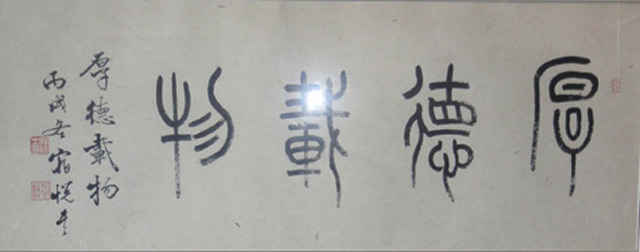 厚德載物
厚德載物
丙戌冬